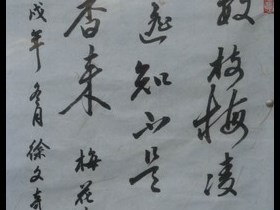 数枝梅凌
遥知不是
香来 梅花
戌年冬月徐文奇